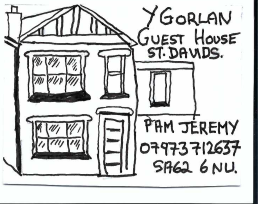 Y GORLAN
GUEST HOUSE
ST. DAVIDS.
PAM JEREMY
07973712637
SA62 6NU.